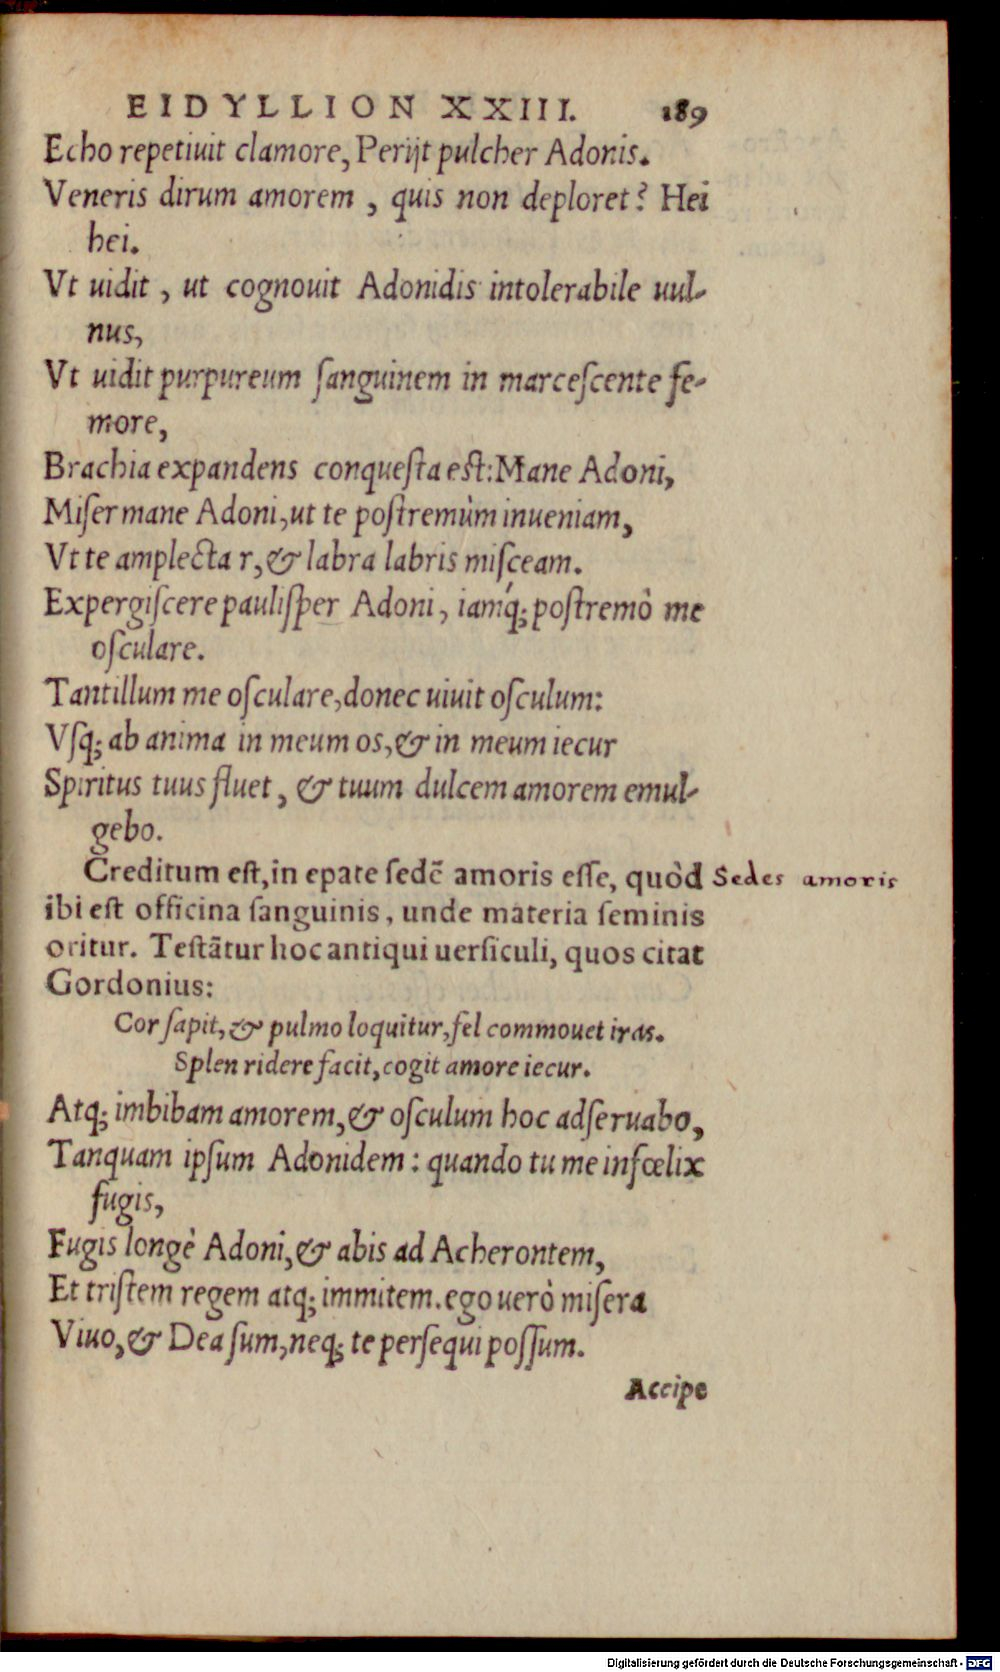 EIDYLLION XXIII. 189
Echo repetiuit clamore, Perijt pulcher Adonis.
Veneris dirum amorem, quis non deploret? Hei
hei.
Vt uidit, ut cognouit Adonidis intolerabile uul-
nus,
Vt uidit purpureum ſanguinem in marceſcente fe-
more,
Brachia expandens conqueſta eſt: Mane Adoni,
Miſer mane Adoni, ut te poſtremùm inueniam,
Vt te amplecta r, & labra labris miſceam.
Expergiſcere pauliſper Adoni, iamq́; poſtremò me
oſculare.
Tantillum me oſculare, donec uiuit oſculum:
Vſq; ab anima in meum os, & in meum iecur
Spiritus tuus fluet, & tuum dulcem amorem emul-
gebo.
Creditum eſt, in epate ſedē amoris eſſe, quòd Sedes amoris
ibi eſt officina ſanguinis, unde materia ſeminis
oritur. Teſtātur hoc antiqui uerſiculi, quos citat
Gordonius:
Cor ſapit, & pulmo loquitur, fel commouet iras.
Splen ridere facit, cogit amore iecur.
Atq; imbibam amorem, & oſculum hoc adſeruabo,
Tanquam ipſum Adonidem: quando tu me infœlix
fugis,
Fugis longè Adoni, & abis ad Acherontem,
Et triſtem regem atq; immitem. ego uerò miſera
Viuo, & Dea ſum, neq; te perſequi poſſum.
Accipe
Digitalisierung gefördert durch die Deutsche Forschungsgemeinschaft - DFG